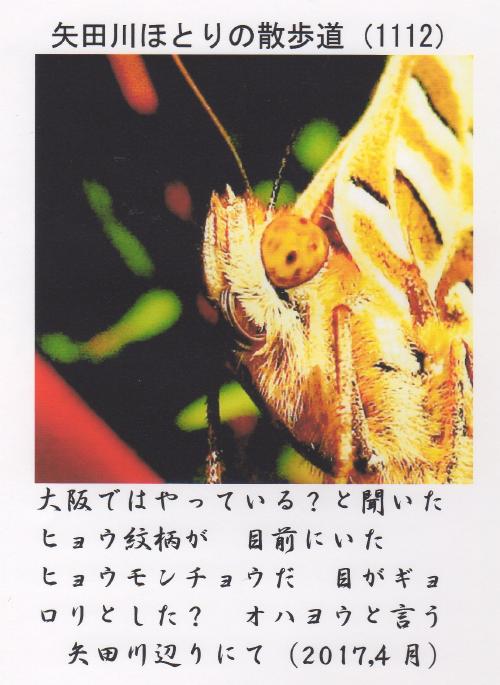 矢田川ほとりの散歩道（1112）
大阪ではやっている？と聞いた
ヒョウ紋柄が　目前にいた
ヒョウモンチョウだ　目がギョ
ロリとした？　オハヨウと言う
矢田川辺りにて（2017,4月）